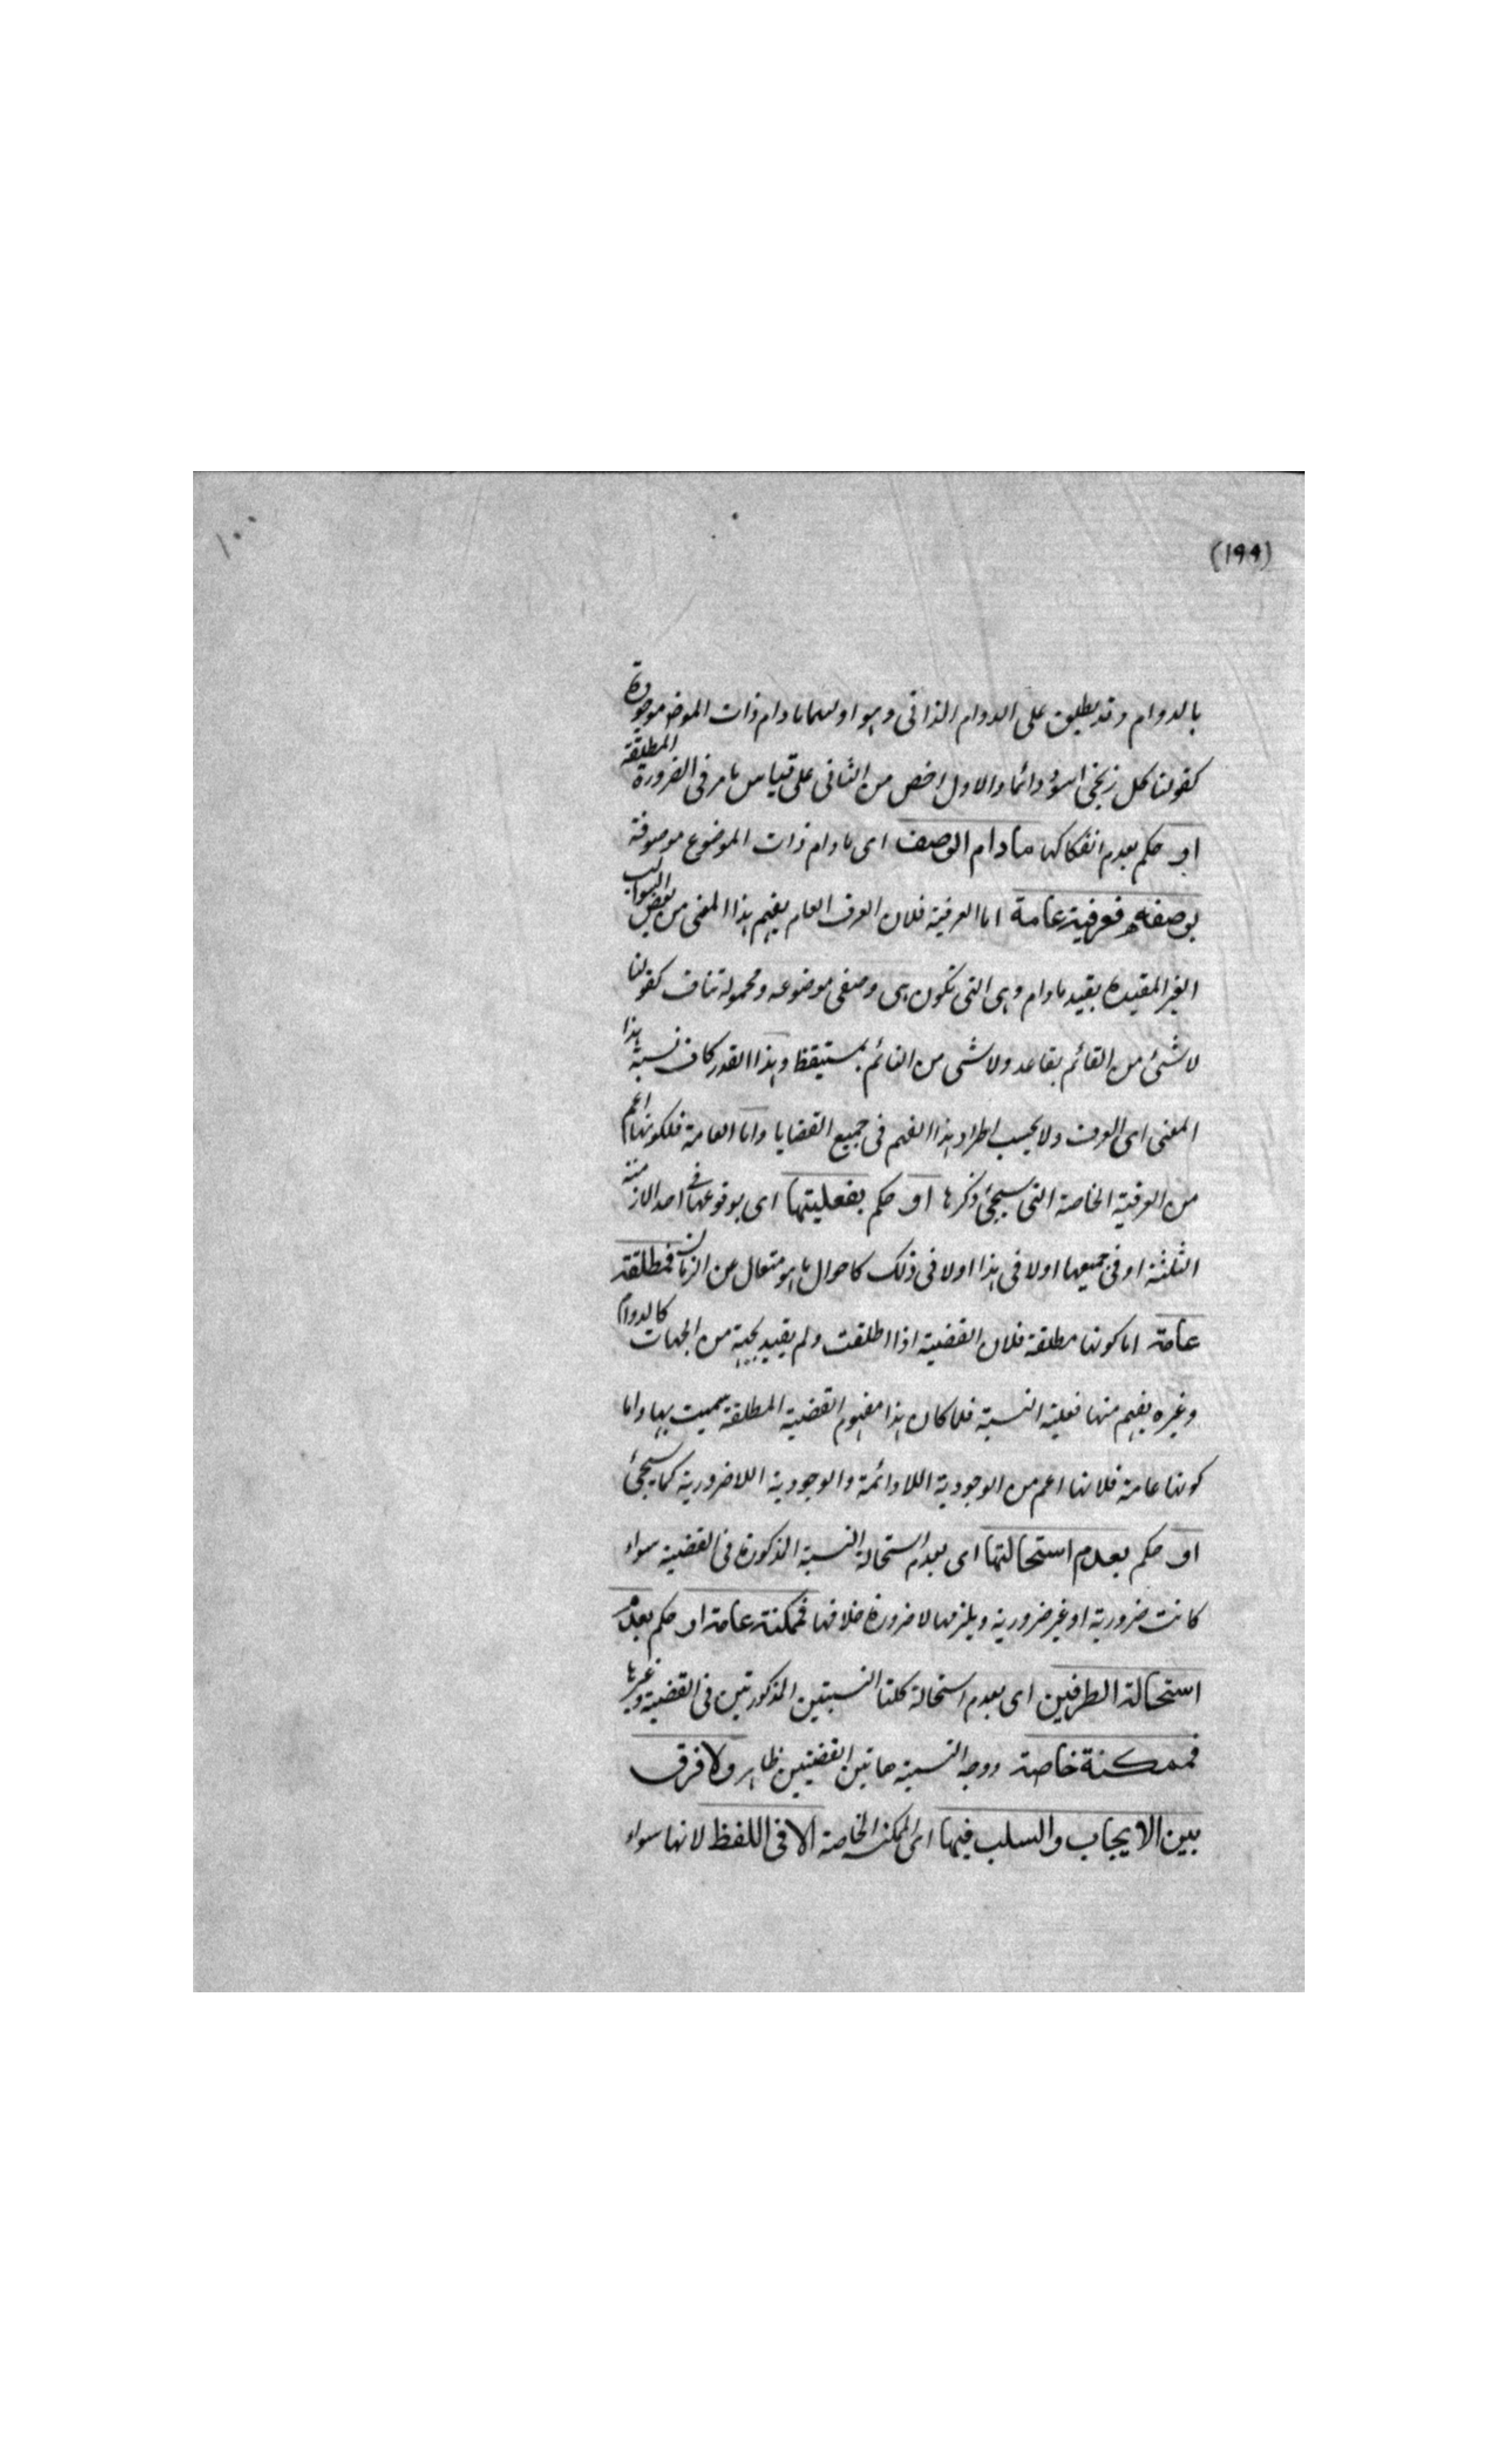 ١٠٠
(١٩٩)
بالدوام وقد يطلق على الدوام الذاتى وهو اولهما مادام ذات الموضوع موجودة
كقولنا كل زنجى اسود دائما والاول اخص من الثانى على قياس ما مر فى الضرورة المطلقة
او حكم بعدم انفكاكها مادام الوصف اى مادام ذات الموضوع موصوفة
بوصفه فعرفية عامة اما العرفية فلان العرف العام يفهم هذا المعنى من بعض السوالب
الغير المقيدة بقيد مادام وهى التى تكون بين وصفى موضوعه ومحموله تناف كقولنا
لا شئ من القائم بقاعد ولا شى من النائم بمستيقظ وهذا القدر كاف نسبة هذا
المعنى اى العرف ولا يجب اطراد هذا الفهم فى جميع القضايا واما العامة فلكونها اعم
من العرفية الخاصة التى سيجئ ذكرها او حكم بفعليتها اى بوقوعها فى احد الازمنة
الثلثة او فى جميعها اولا فى هذا اولا فى ذلك كاحوال ما هو متعال عن الزمان فمطلقة
عامة اما كونها مطلقة فلان القضية اذا اطلقت ولم يقيد بجهة من الجهات كالدوام
وغيره يفهم منها فعلية النسبة فلما كان هذا مفهوم القضية المطلقة سميت بها واما
كونها عامة فلانها اعم من الوجودية اللادائمة والوجودية اللاضرورية كما سيجئ
او حكم بعدم استحالتها اى بعدم استحالة النسبة المذكورة فى القضية سواء
كانت ضرورية او غير ضرورية ويلزمها لا ضرورة خلافها فممكنة عامة او حكم بعدم
استحالة الطرفين اى بعدم استحالة كلتا النسبتين المذكورتين فى القضية وغيرها
فممكنة خاصة ووجه النسبة هاتين القضيتين ظاهر ولا فرق
بين الايجاب والسلب فيها اى الممكنة الخاصة الا فى اللفظ لانها سواء